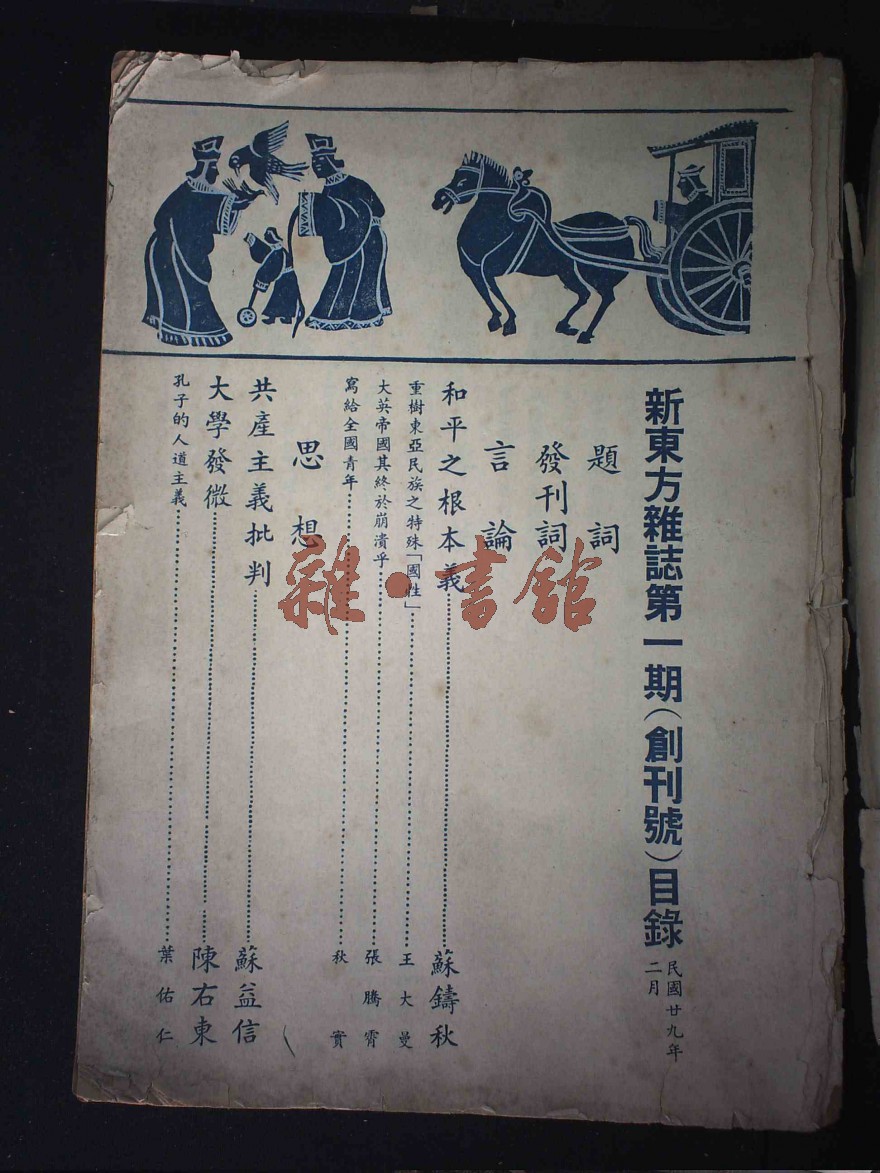 新東方雜誌第一期（創刊號）目錄
民國廿九年
二月
題詞
發刊詞
言論
和平之根本義 蘇鑄秋
重樹東亞民族之特殊「國性」 王大曼
大英帝國其終於崩潰乎 張騰霄
寫給全國青年 秋實
思想
共產主義批判 蘇益信
大學發微 陳右東
孔子的人道主義 葉佑仁
雜·書館